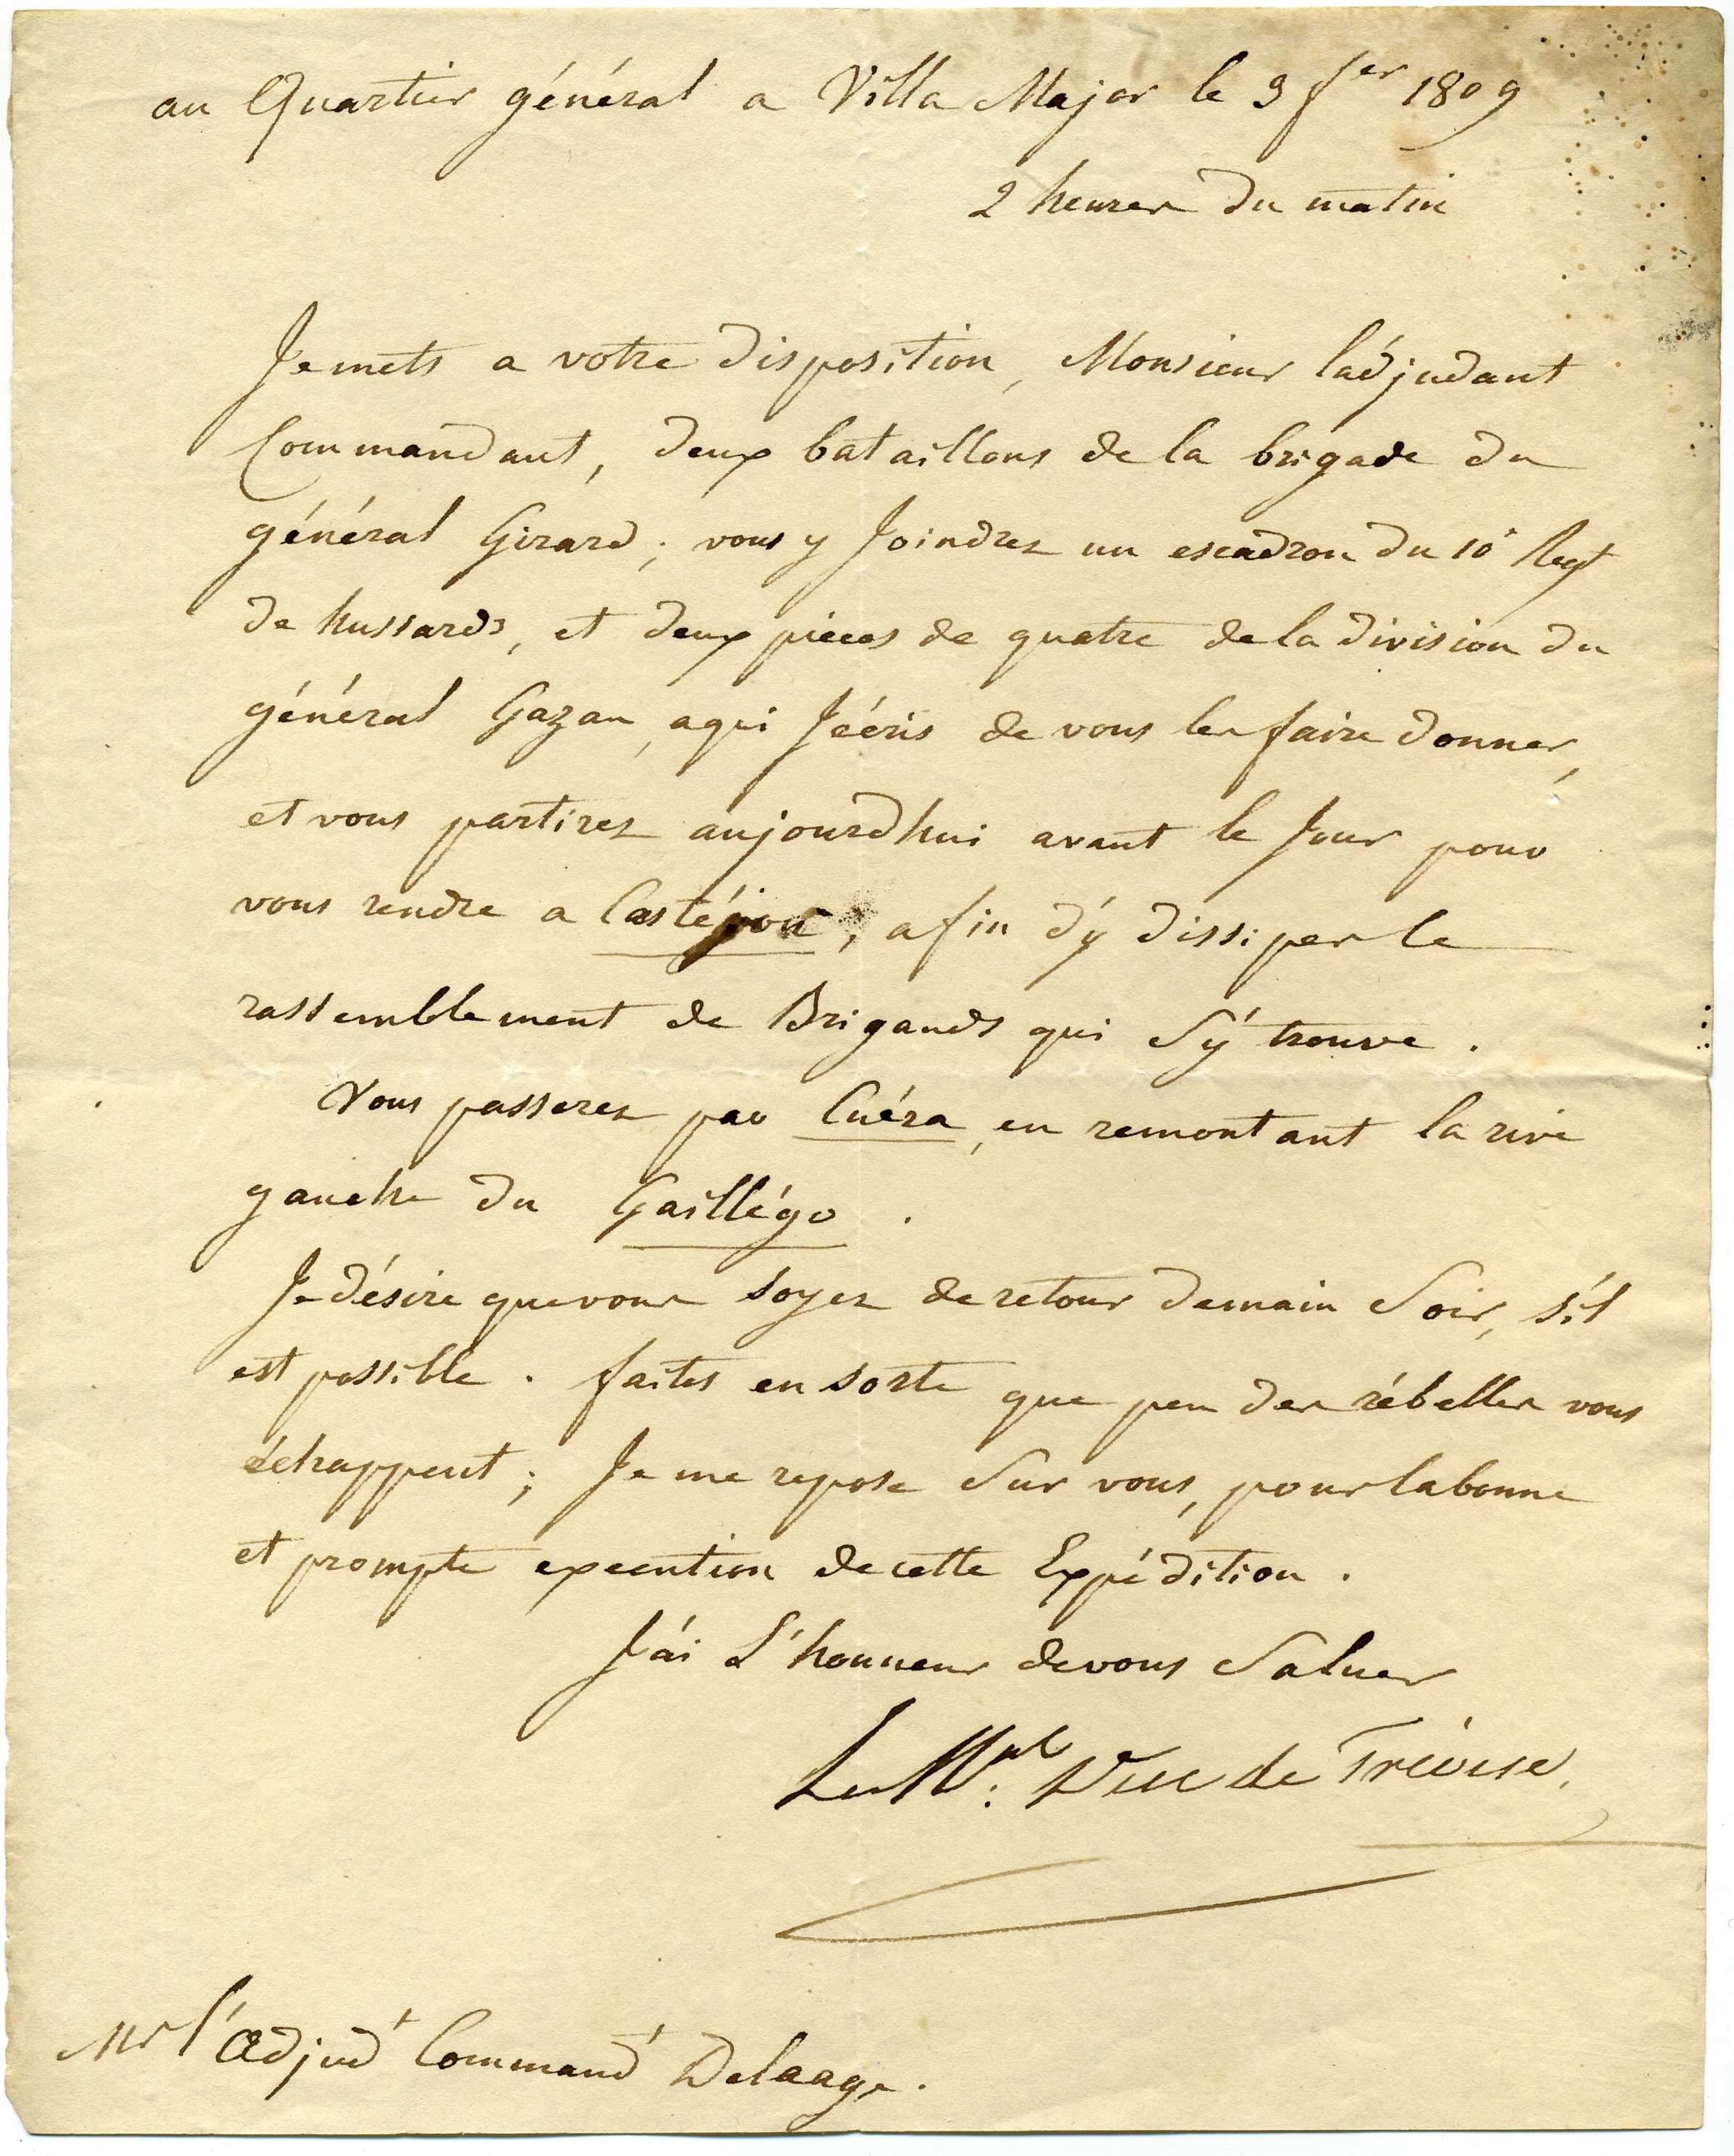 au Quartier général a Villa Major le 3 fer 1809
2 heures du matin
Je mets a votre disposition, Monsieur l'adjudant
Commandant, deux bataillons de la brigade du
général Girard; vous y Joindrez un escadron du 10e Regt
de hussards, et deux pieces de quatre de la division du
général Gazan, a qui J'écris de vous les faire donner,
et vous partirez aujourd'hui avant le Jour pour
vous rendre a Castéjon, afin d'y dissiper le
rassemblement de Brigands qui s'y trouve.
Vous passerez par Cuéra, en remontant la rive
gauche du Gaillégo.
Je désire que vous soyez de retour demain Soir, s'il
est possible. faites en sorte que peu des rébelles vous
échappent; Je me repose Sur vous, pour la bonne
et prompte execution de cette Expédition.
J'ai L'honneur de vous Saluer
Le Mal. Duc de Trévise,
Mr l'adjudt Commandt Delaage.